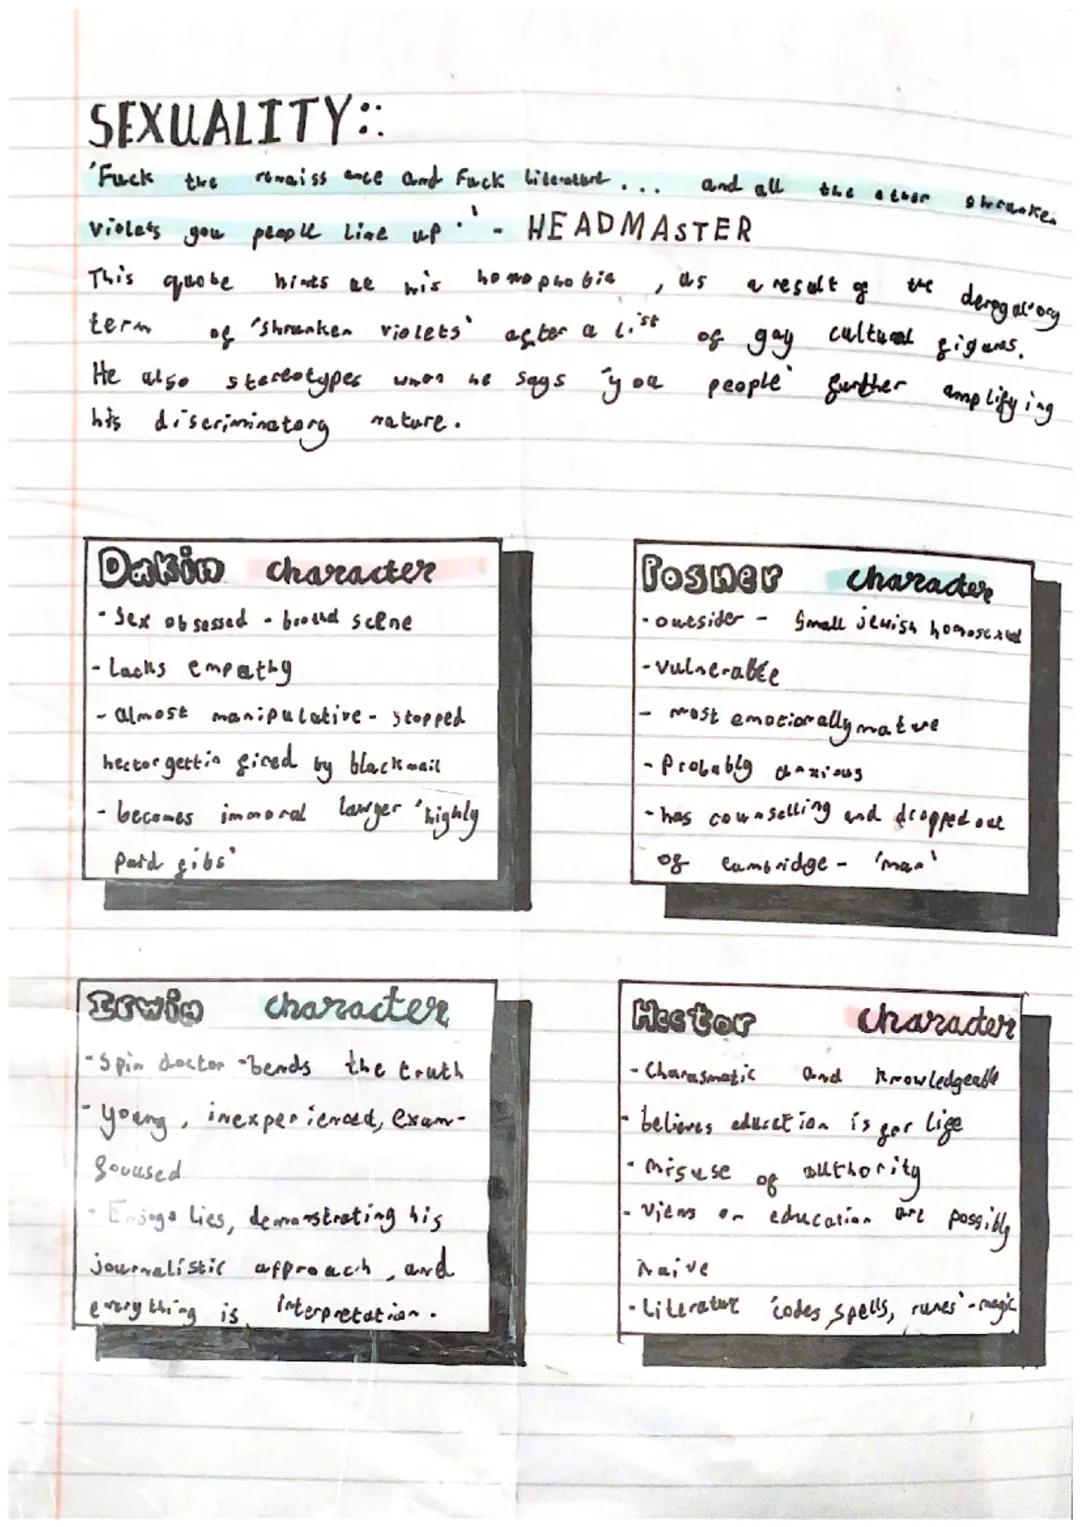 SEXUALITY::
'Fuck the renaissance and Fuck Literature... and all the other shrunken
violets you people line up.' - HEADMASTER
This quote hints at his homophobia, as a result of the derogatory
term of 'shrunken violets' after a list of gay cultural figures.
He also stereotypes when he says 'you people' further amplifying
his discriminatory nature.
Dakin character
- Sex obsessed - brothel scene
- Lacks empathy
- almost manipulative - stopped
hector gettin fired by blackmail
- becomes immoral lawyer 'highly
paid fibs'
Posner character
- outsider - Small jewish homosexual
- vulnerable
- most emotionally mature
- Probably anxious
- has counselling and dropped out
of Cambridge - 'man'
Irwin character
- Spin doctor - bends the truth
- young, inexperienced, exam-
focused
- Enjoys lies, demonstrating his
journalistic approach, and
everything is interpretation.
Hector character
- Charasmatic and knowledgeable
- believes education is for life
- misuse of authority
- views on education are possibly
naive
- Literature 'codes, spells, runes' - magic